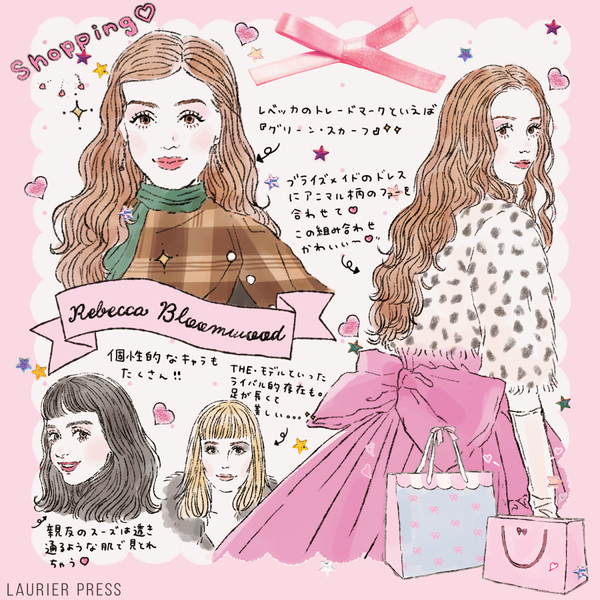 Shopping
レベッカのトレードマークといえば
『グリーン・スカーフ』
ブライズメイドのドレス
にアニマル柄のファーを
合わせて
この組み合わせ
かわいい〜
Rebecca Bloomwood
個性的なキャラも
たくさん!!
THE・モデルといった
ライバル的存在も。
足が長くて
美しい。。。。
親友のスーズは透き
通るような肌で見とれ
ちゃう
LAURIER PRESS